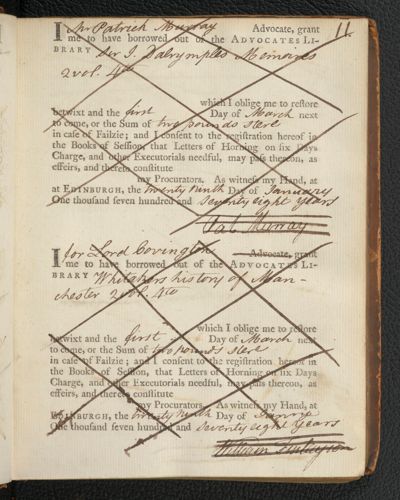 11
I Mr Patrick Murray Advocate, grant
me to have borrowed out of the ADVOCATES LI-
BRARY Sir J. Dalrymples Memoires
2 vol. 4to
which I oblige me to restore
betwixt and the first Day of March next
to come, or the Sum of two pounds sterl
in case of Failzie; and I consent to the registration hereof in
the Books of Session, that Letters of Horning on six Days
Charge, and other Executorials needful, may pass thereon, as
effeirs, and thereto constitute
my Procurators. As witness my Hand, at
at EDINBURGH, the twenty ninth Day of January
One thousand seven hundred and seventy eight years
Pat. Murray
I for Lord Covington Advocate, grant
me to have borrowed out of the ADVOCATES LI-
BRARY Whitakers history of Man-
chester 2 vol. 4to
which I oblige me to restore
betwixt and the first Day of March next
to come, or the Sum of two pounds sterl
in case of Failzie; and I consent to the registration hereof in
the Books of Session, that Letters of Horning on six Days
Charge, and other Executorials needful, may pass thereon, as
effeirs, and thereto constitute
my Procurators. As witness my Hand, at
EDINBURGH, the twenty ninth Day of
One thousand seven hundred and seventy eight years
William